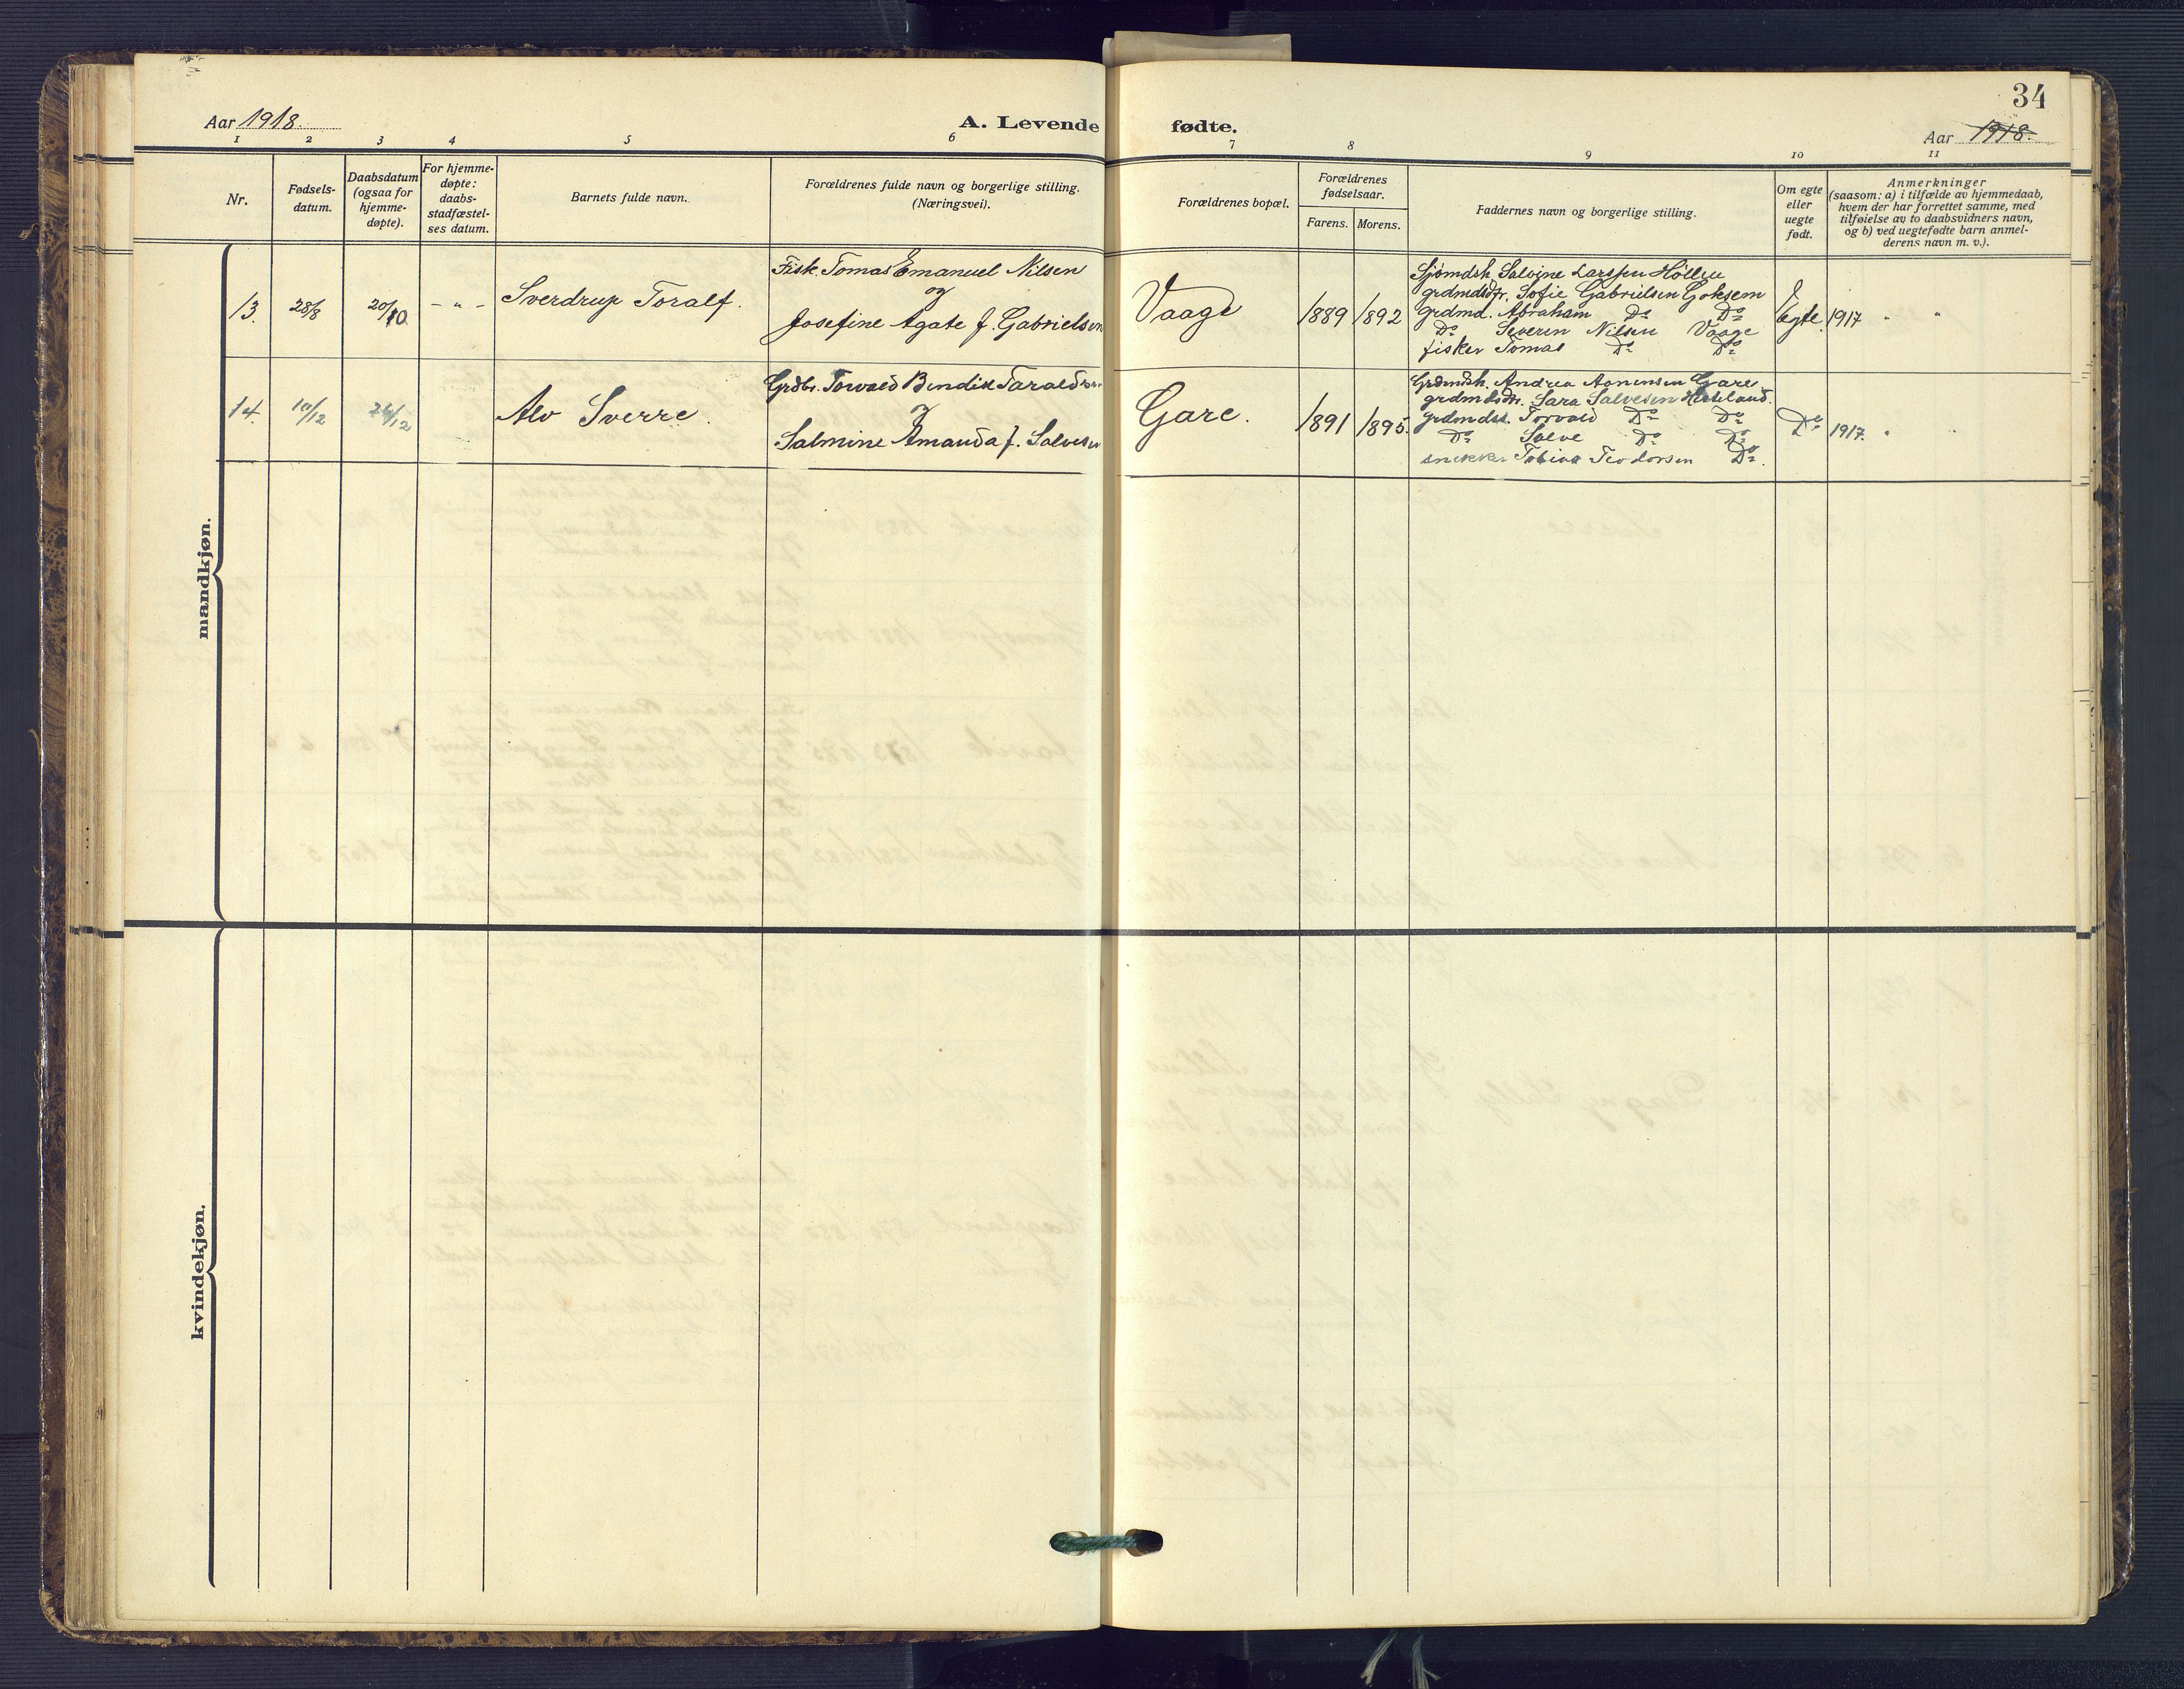 34
Aar 1918.
A. Levende fødte.
Aar 1918.
1 2 3 4 5 6 7 8 9 10 11
Nr.
Fødsels-
datum.
Daabsdatum
(ogsaa for
hjemme-
døpte).
For hjemme-
døpte:
daabs-
stadfæstel-
ses datum.
Barnets fulde navn.
Forældrenes fulde navn og borgerlige stilling.
(Næringsvei).
Forældrenes bopæl.
Forældrenes
fødselsaar.
Farens. Morens.
Faddernes navn og borgerlige stilling.
Om egte
eller
uegte
født.
Anmerkninger
(saasom: a) i tilfælde av hjemmedaab,
hvem der har forrettet samme, med
tilføielse av to daabsvidners navn,
og b) ved uegtefødte barn anmel-
derens navn m. v.).
mandkjøn.
13. 28/8 20/10 - " - Sverdrup Toralf.
Fisk. Tomas Emanuel Nilsen
og
Josefine Agate f. Gabrielsen
Vaage 1889 1892
Sjømdsh. Salvine Larssen Höllen
grdmdsdtr. Sofie Gabrielsen Goksem
grdmd. Abraham Do Do
Do Severin Nilsen Vaage
fisker Tomas Do Do
Egte. 1917 " "
14. 10/12 26/12 Alv Sverre.
Grdbr. Torvald Bendik Taraldsen
og
Salmine Amanda f. Salvesen
Gare. 1891 1895.
Grdmdsh. Andrea Aanensen Gare
grdmdsdtr. Sara Salvesen Hesteland.
grdmdss. Torvald Do Do
Do Salve Do Do
snekker Tobias Teodorsen Do.
Do 1917. "
kvindekjøn.